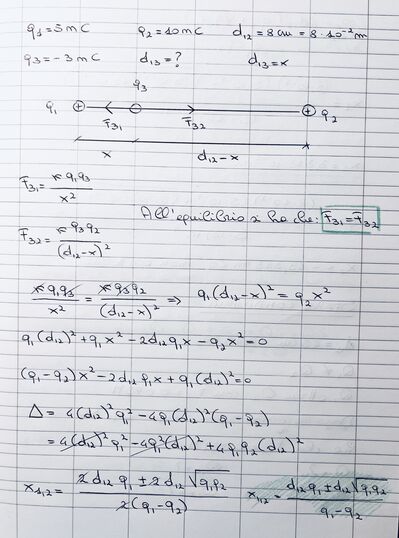 q1 = 5 mC q2 = 10 mC d12 = 8 cm = 8·10⁻² m
q3 = -3 mC d13 = ? d13 = x
q3
q1 ⊕ ⊕ q2
F31 F32
x d12-x
F31 = K q1 q3 / x²
All'equilibrio si ha che: F31 = F32
F32 = K q3 q2 / (d12-x)²
K q1 q3 / x² = K q3 q2 / (d12-x)² ⇒ q1(d12-x)² = q2 x²
q1(d12)² + q1x² - 2d12q1x - q2x² = 0
(q1-q2)x² - 2d12 q1x + q1(d12)² = 0
Δ = 4(d12)²q1² - 4q1(d12)²(q1-q2)
= 4(d12)²q1² - 4q1²(d12)² + 4q1q2(d12)²
x1,2 = 2d12 q1 ± 2d12 √q1q2 / 2(q1-q2) x1,2 = d12 q1 ± d12 √q1q2 / q1-q2